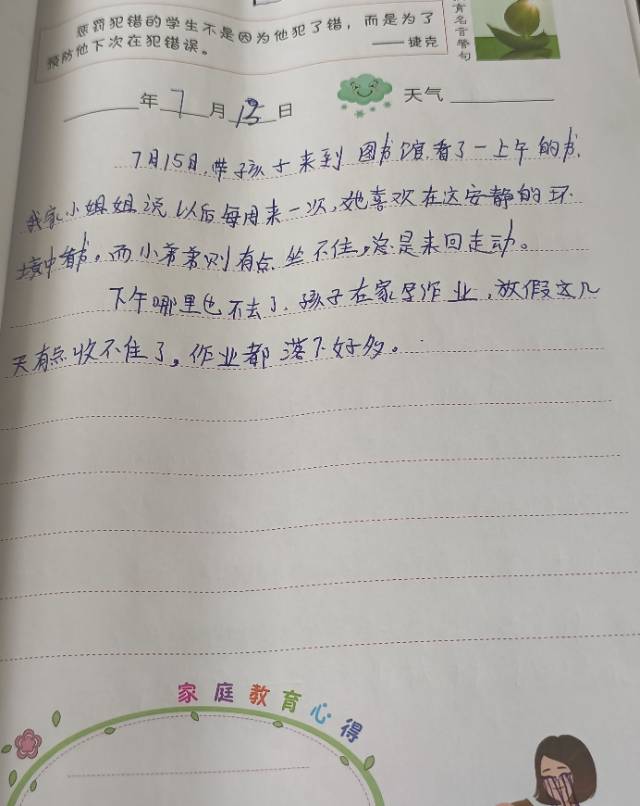 惩罚犯错的学生不是因为他犯了错，而是为了
预防他下次在犯错误。
——捷克
育名言警句
年7月15日 天气
7月15日，带孩子来到图书馆看了一上午的书，
我家小姐姐说以后每周来一次，她喜欢在这安静的环
境中看书，而小弟弟则有点坐不住，总是来回走动。
下午哪里也不去了，孩子在家写作业，放假这几
天有点收不住了，作业都落下好多。
家庭教育心得